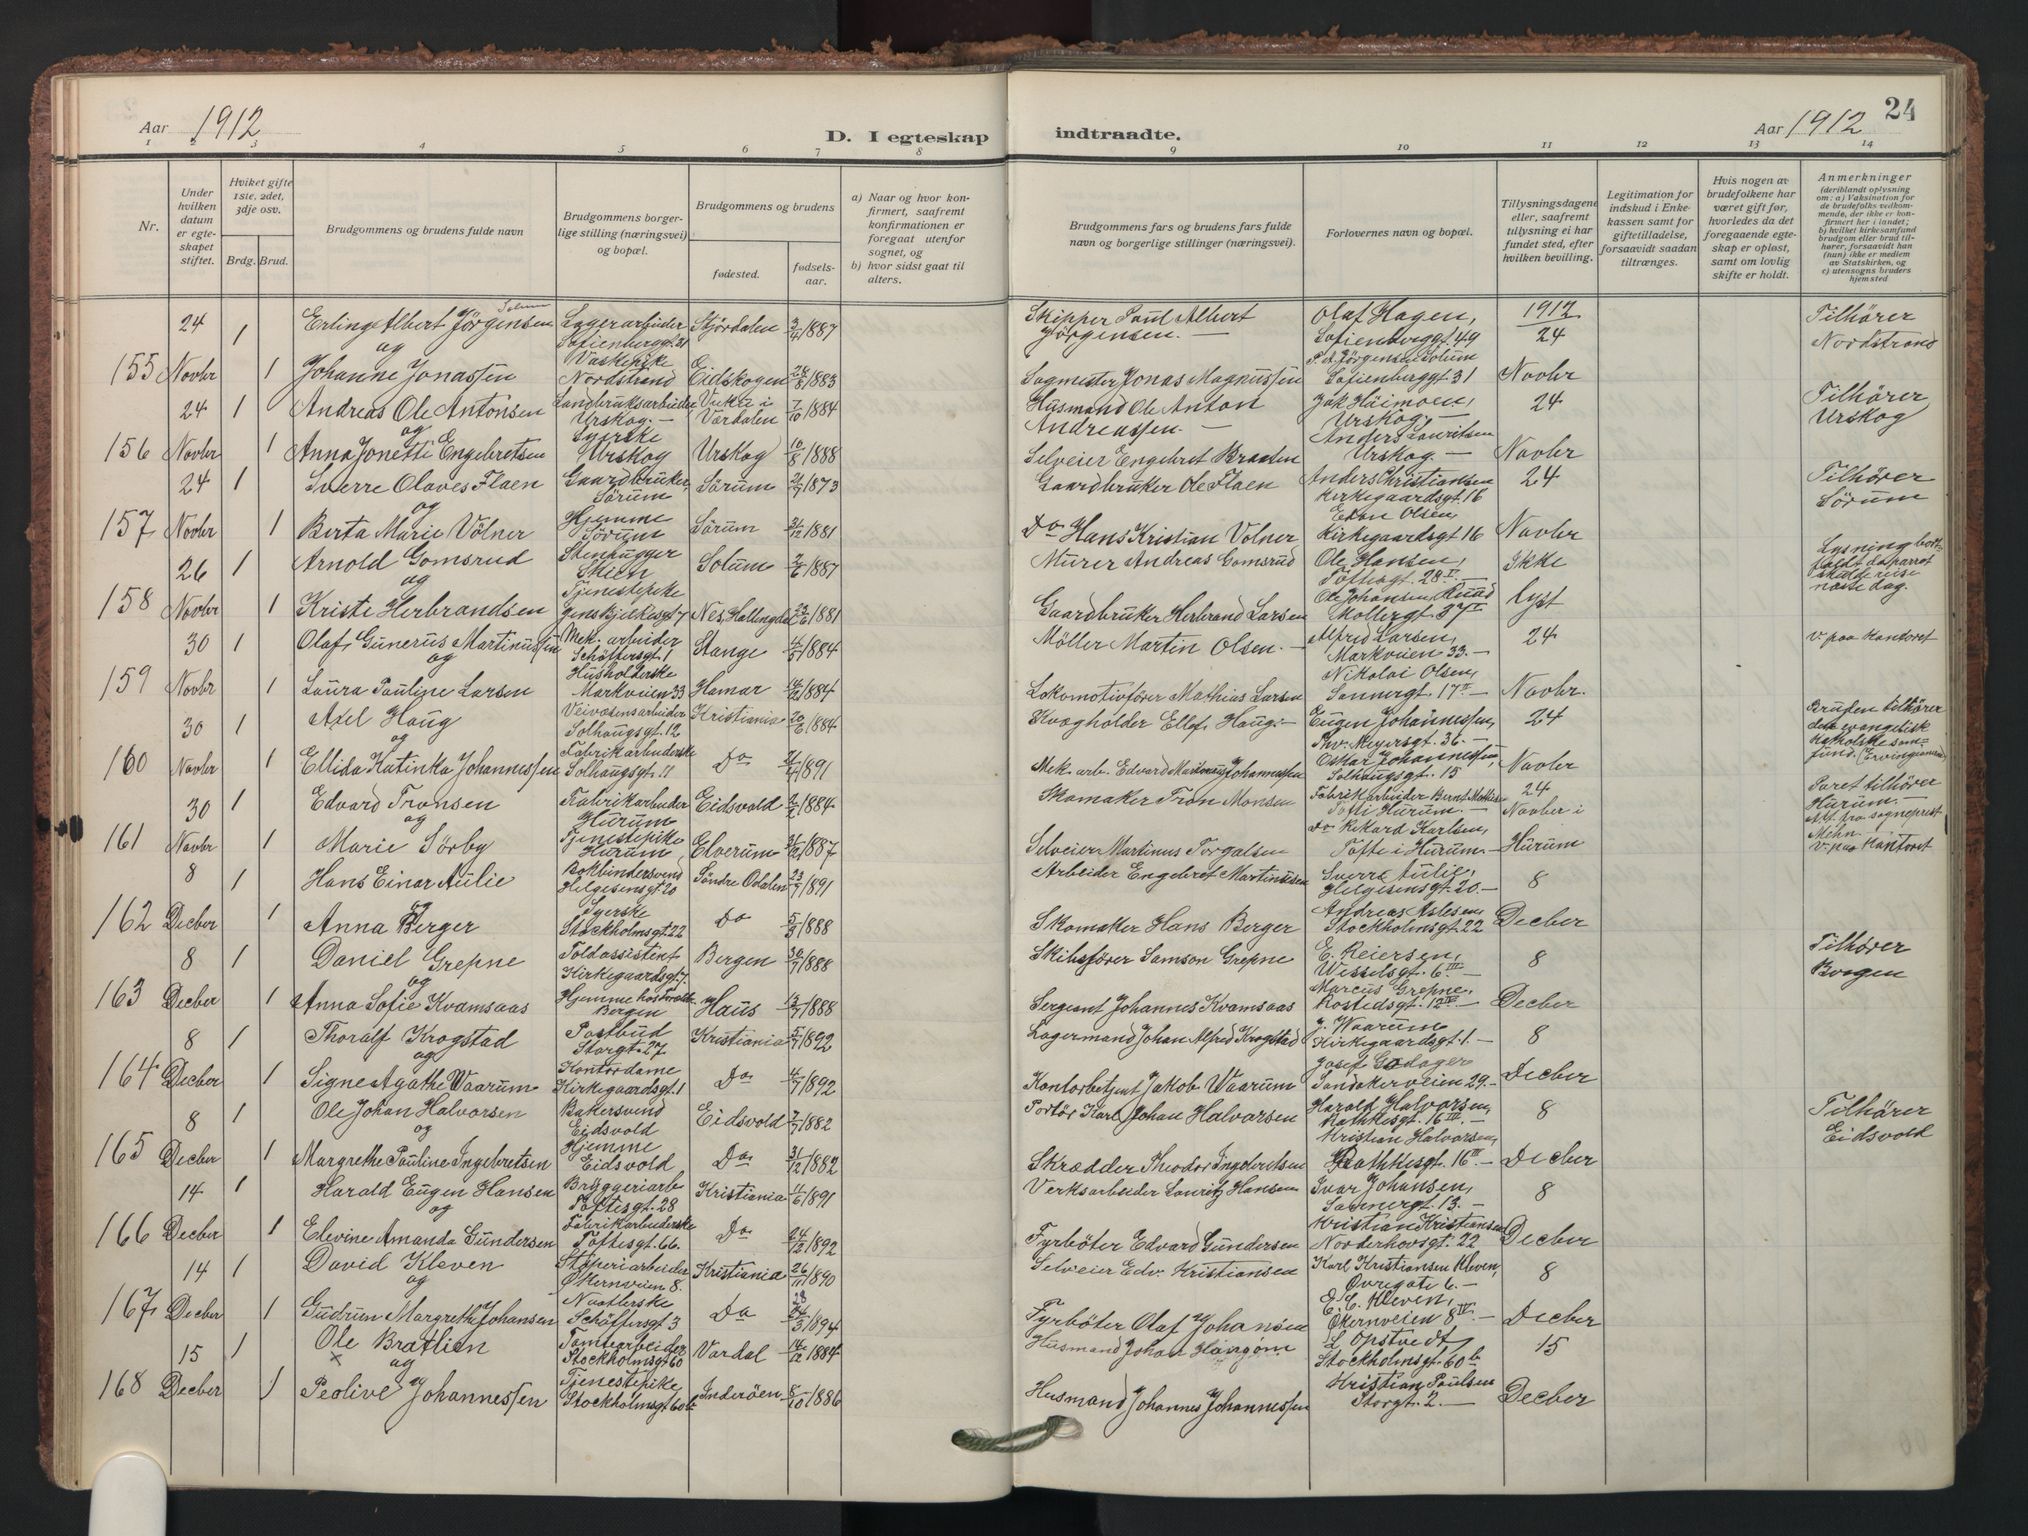 24
Aar 1912
D. I egteskap indtraadte.
Aar 1912
1 2 3 4 5 6 7 8 9 10 11 12 13 14
Nr.
Under hvilken datum er egteskapet stiftet.
Hviket gifte 1ste, 2det, 3dje osv.
Brdg. Brud.
Brudgommens og brudens fulde navn
Brudgommens borgerlige stilling (næringsvei) og bopæl.
Brudgommens og brudens
fødested. fødselsaar.
a) Naar og hvor konfirmert, saafremt konfirmationen er foregaat utenfor sognet, og
b) hvor sidst gaat til alters.
Brudgommens fars og brudens fars fulde navn og borgerlige stillinger (næringsvei).
Forlovernes navn og bopæl.
Tillysningsdagene eller, saafremt tillysning ei har fundet sted, efter hvilken bevilling.
Legitimation for indskud i Enkekassen samt for giftetilladelse, forsaavidt saadan tiltrænges.
Hvis nogen av brudefolkene har været gift før, hvorledes da det foregaaende egteskap er opløst, samt om lovlig skifte er holdt.
Anmerkninger (deriblandt oplysning om: a) Vaksination for de brudefolks vedkommende, der ikke er konfirmert her i landet; b) hvilket kirkesamfund brudgom eller brud tilhører, forsaavidt han (hun) ikke er medlem av Statskirken, og c) utensogns bruders hjemsted
24 1 Erling Albert Jörgensen Solum Lagerarbeider Sofienberggt. 31 Stjördalen 3/4 1887 Skipper Paul Albert Jörgensen. Olaf Hagen, Sofienberggt. 49 1912 24 Tilhører Nordstrand
og
155 Novbr 1 Johanne Jonassen Vaskepike Nordstrand Eidskogen 28/8 1883 Sagmester Jonas Magnussen P. A. Jörgensen Solum Sofienberggt. 31 Novbr
24 1 Andreas Ole Antonsen Landbruksarbeider Urskog. Vukü i Værdalen 7/10 1884 Husmand Ole Anton Andreassen. Jak Höimoen, Urskog. 24 Tilhører Urskog
og
156 Novbr 1 Anna Jonetti Engebretsen Syerske Urskog Urskog 10/8 1888 Selveier Engebret Braaten Anders Lauritsen Urskog. Novbr
24 1 Sverre Olaves Flaen Gaardbruker, Sörum Sörum 21/7 1873 Gaardbruker Ole Flaen Anders Christiansen Kirkegaardsgt. 16 24 Tilhører Sörum
og
157 Novbr 1 Berta Marie Völner Hjemme Sörum Sörum 31/12 1881 Do Hans Kristian Volner Even Olsen, Kirkegaardsgt. 16 Novbr
26 1 Arnold Gomsrud Stenhugger Skeen Solum 2/6 1887 Murer Andreas Gomsrud Ole Hansen, Toftesgt. 28 II Ikke Lysning bortfaldt da parret skulde reise næste dag.
og
158 Novbr 1 Kristi Herbrandsen Tjenestepike Jens Bjelkesgt 7 Nes, Hallingdal 23/6 1881 Gaardbruker Herbrand Larsen Ole Johansen Ruud Holbergt. 37 I lyst
30 1 Olaf Gunerus Martinussen Mek. arbeider Schöttersgt. 1 Stange 4/5 1884 Möller Martin Olsen. Alfred Larsen, Markveien 33. 24 v. paa Kontoret
og
159 Novbr 1 Laura Pauline Larsen Husholderske Markveien 33 Hamar 14/12 1884 Lokomotivfører Mathias Larsen Nikolai Olsen, Sannergt. 17 II Novbr.
30 1 Axel Haug Veivæsensarbeider Solhaugsgt. 12 Kristiania 20/6 1884 Kvægholder Ellef Haug. Eugen Johannessen, Thv. Meyersgt. 36. 24 Bruden tilhører den evangelisk katholske samfund. (Ervingianerne)
og
160 Novbr 1 Ellida Katinka Johannessen Fabrikarbeiderske Solhaugsgt. 11 Do 7/4 1891 Mek. arb. Edvard Martinus Johannessen Oskar Johannessen, Solhaugsgt. 15 Novbr
30 1 Edvard Tronsen Fabrikarbeider Hurum Eidsvold 2/2 1884 Skomaker Tron Monsen Fabrikarbeider Bernt Tofte Hurum. 24 Novbr i Paret tilhører Hurum. att. fra sogneprest Mehn. v. paa Kontoret
og
161 Novbr 1 Marie Sörby Tjenestepike Hurum Elverum 31/12 1887 Selveier Martinus Torgalsen Do Rikard Karlsen, Tofte i Hurum. Hurum
8 1 Hans Einar Aulie Bokbindersvend Helgesensgt. 20 Söndre Odalen 23/7 1891 Arbeider Engebret Martinussen Sverre Aulie, Helgesensgt. 20. 8
og
162 Decber 1 Anna Berger Syerske Stockholmsgt. 22 Do 5/3 1888 Skomaker Hans Berger Andreas Aslesen, Stockholmsgt. 22 Decber
8 1 Daniel Grepne Toldassistent Kirkegaardsgt 7. Bergen 30/7 1888 Skibsfører Samson Grepne E. Reiersen, Wesselsgt. 6 III 8 Tilhører Bergen
og
163 Decber 1 Anna Sofie Kvamsaas Hjemme hos Bergen Haus 13/7 1888 Sergeant Johannes Kvamsaas Marcus Grepne, Rostedsgt. 12 Decber
8 1 Thoralf Krogstad Postbud Storgt. 27 Kristiania 5/7 1892 Lagermand Johan Alfred Krogstad J. Waarum Kirkegaardsgt. 1. 8
og
164 Decber 1 Signe Agathe Waarum Kontordame Kirkegaardsgt. 1 Do 4/7 1892 Kontorbetjent Jakob Waarum Josef Godager Sandakerveien 29. Decber
8 1 Ole Johan Halvorsen Bakersvend Eidsvold Eidsvold 7/7 1882 Portör Karl Johan Halvorsen Harald Halvorsen, Rathkesgt. 16 III. 8 Tilhører Eidsvold
og
165 Decber 1 Margrethe Pauline Ingebretsen Hjemme Eidsvold Do 31/12 1882 Skrædder Theodor Ingebretsen Kristian Halvorsen, Rathkesgt. 16 III. Decber
14 1 Harald Eugen Hansen Bryggeriarb Toftesgt. 28 Kristiania 11/6 1891 Verksarbeider Lauritz Hansen Ivar Johansen, Sannergt. 13. 8
og
166 Decber 1 Elevine Amanda Gundersen Fabrikarbeiderske Toftesgt. 66. Do 24/12 1892 Fyrböter Edvard Gundersen Kristian Kristiansen Norderhovsgt. 22 Decber
14 1 David Kleven Støperiarbeider Økernveien 8. Kristiania 26/11 1890 Selveier Edv. Kristiansen Karl Kristiansen Kleven, Øvregate 6. 8
og
167 Decber 1 Gudrun Margrethe Johansen Schöttersgt 3 Do 23 24/3 1894 Fyrböter Olaf Johansen E. C. Kleven, Økernveien 8 IV. Decber
15 1 Ole Bratlien Tomtearbeider Stockholmsgt. 60 Vardal 14/12 1884 Husmand Johan L. Opstvedt, Stockholmsgt. 60 b 15
x og
168 Decber 1 Peolive Johannessen Tjenestepike Stockholmsgt 60 b Inderöen 8/10 1886 Husmand Johannes Johannessen Kristian Paulsen Storgt. 2. Decber